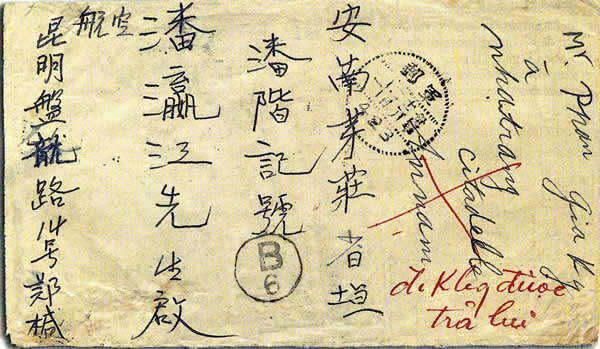 安南芽莊省垣
潘階記號
潘瀛江先生啟
航空
昆明盤龍路14号鄭緘
Mr. Phan Gia Ky
à
nhatrang
citadelle
Annam
B
6
đi không được
trả lui